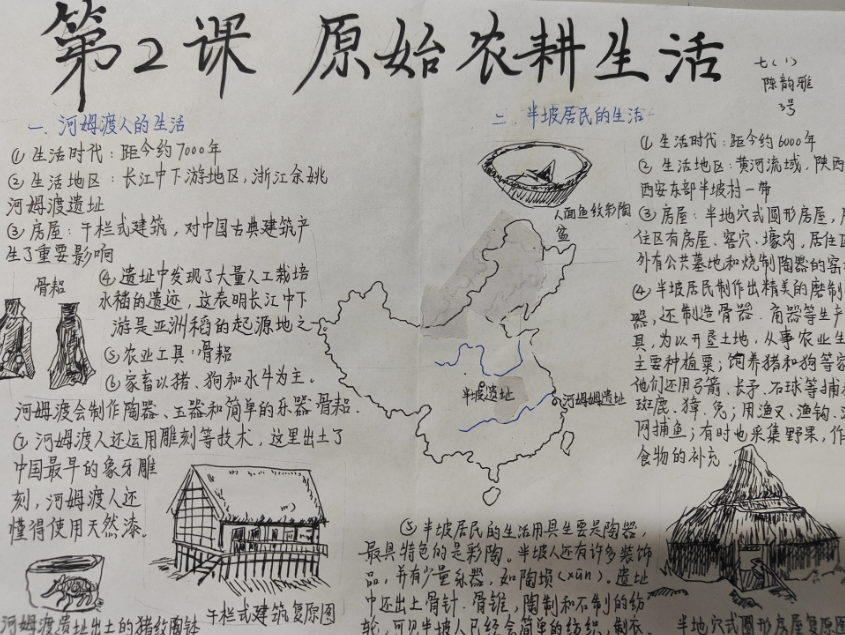 第2课 原始农耕生活
七(1)
陈韵雅
3号
一、河姆渡人的生活
①生活时代:距今约7000年
②生活地区:长江中下游地区,浙江余姚
河姆渡遗址
③房屋:干栏式建筑,对中国古典建筑产
生了重要影响
骨耜
④遗址中发现了大量人工栽培
水稻的遗迹,这表明长江中下
游是亚洲稻的起源地之一
⑤农业工具:骨耜
⑥家畜以猪、狗和水牛为主。
河姆渡会制作陶器、玉器和简单的乐器·骨耜.
⑦河姆渡人还运用雕刻等技术,这里出土了
中国最早的象牙雕
刻,河姆渡人还
懂得使用天然漆。
河姆渡遗址出土的猪纹陶钵
干栏式建筑复原图
二、半坡居民的生活
人面鱼纹彩陶
盆
半坡遗址
河姆姆遗址
①生活时代:距今约6000年
②生活地区:黄河流域,陕西
西安东部半坡村一带
③房屋:半地穴式圆形房屋,
住区有房屋、窖穴、壕沟,居住区
外有公共墓地和烧制陶器的窑
④半坡居民制作出精美的磨制
器,还制造骨器、角器等生产
具,为以开垦土地,从事农业生
主要种植粟;饲养猪和狗等家
他们还用弓箭、长矛、石球等捕
斑鹿、獐、兔;用渔叉、渔钩、
网捕鱼;有时也采集野果,作
食物的补充。
⑤半坡居民的生活用具主要是陶器,
最具特色的是彩陶。半坡人还有许多装饰
品,并有少量乐器,如陶埙(xūn)。遗址
中还出土骨针、骨锥,陶制和石制的纺
轮,可见半坡人已经会简单的纺织、制衣、
半地穴式圆形房屋复原图